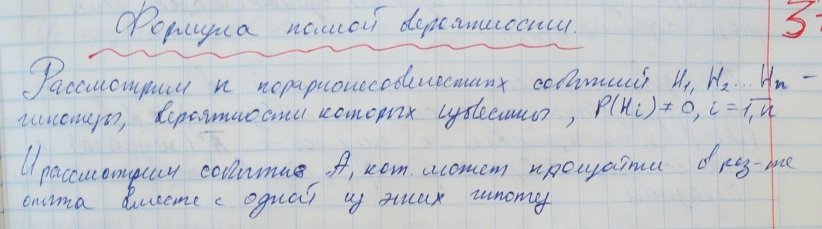 Формула полной вероятности.
Рассмотрим n попарнонесовместных событий H₁, H₂... Hn -
гипотезы, вероятности которых известны, P(Hi) ≠ 0, i = 1,n
И рассмотрим событие A, кот. может произойти в рез-те
опыта вместе с одной из этих гипотез